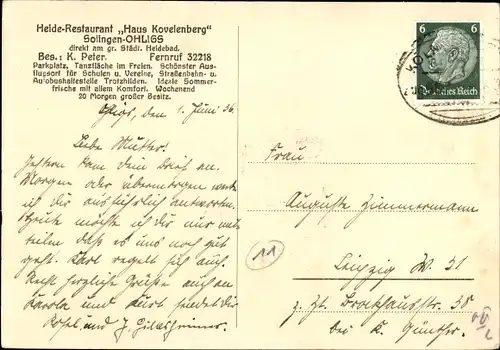 Heide-Restaurant „Haus Kovelenberg"
Solingen-OHLIGS
direkt am gr. Städt. Heidebad.
Bes.: K. Peter. Fernruf 32218
Parkplatz, Tanzfläche im Freien. Schönster Aus-
flugsort für Schulen u. Vereine, Straßenbahn- u.
Autobushaltestelle Trotzhilden. Ideale Sommer-
frische mit allem Komfort. Wochenend
20 Morgen großer Besitz.
Ohligs, den 1. Juni 36.
Liebe Mutter!
Gestern kam dein Brief an.
Morgen oder übermorgen werde
ich dir ausführlich antworten.
Heute möchte ich dir nur mit-
teilen daß es uns noch gut
geht. Karl regelt sich auch.
Recht herzliche Grüße auch an
Karola und Kurt sendet dir
und
6
Deutsches Reich
KÖLN
Frau
Auguste Zimmermann
11
Leipzig W. 31
z. Zt. Brockhausstr. 58
bei K. Günther.